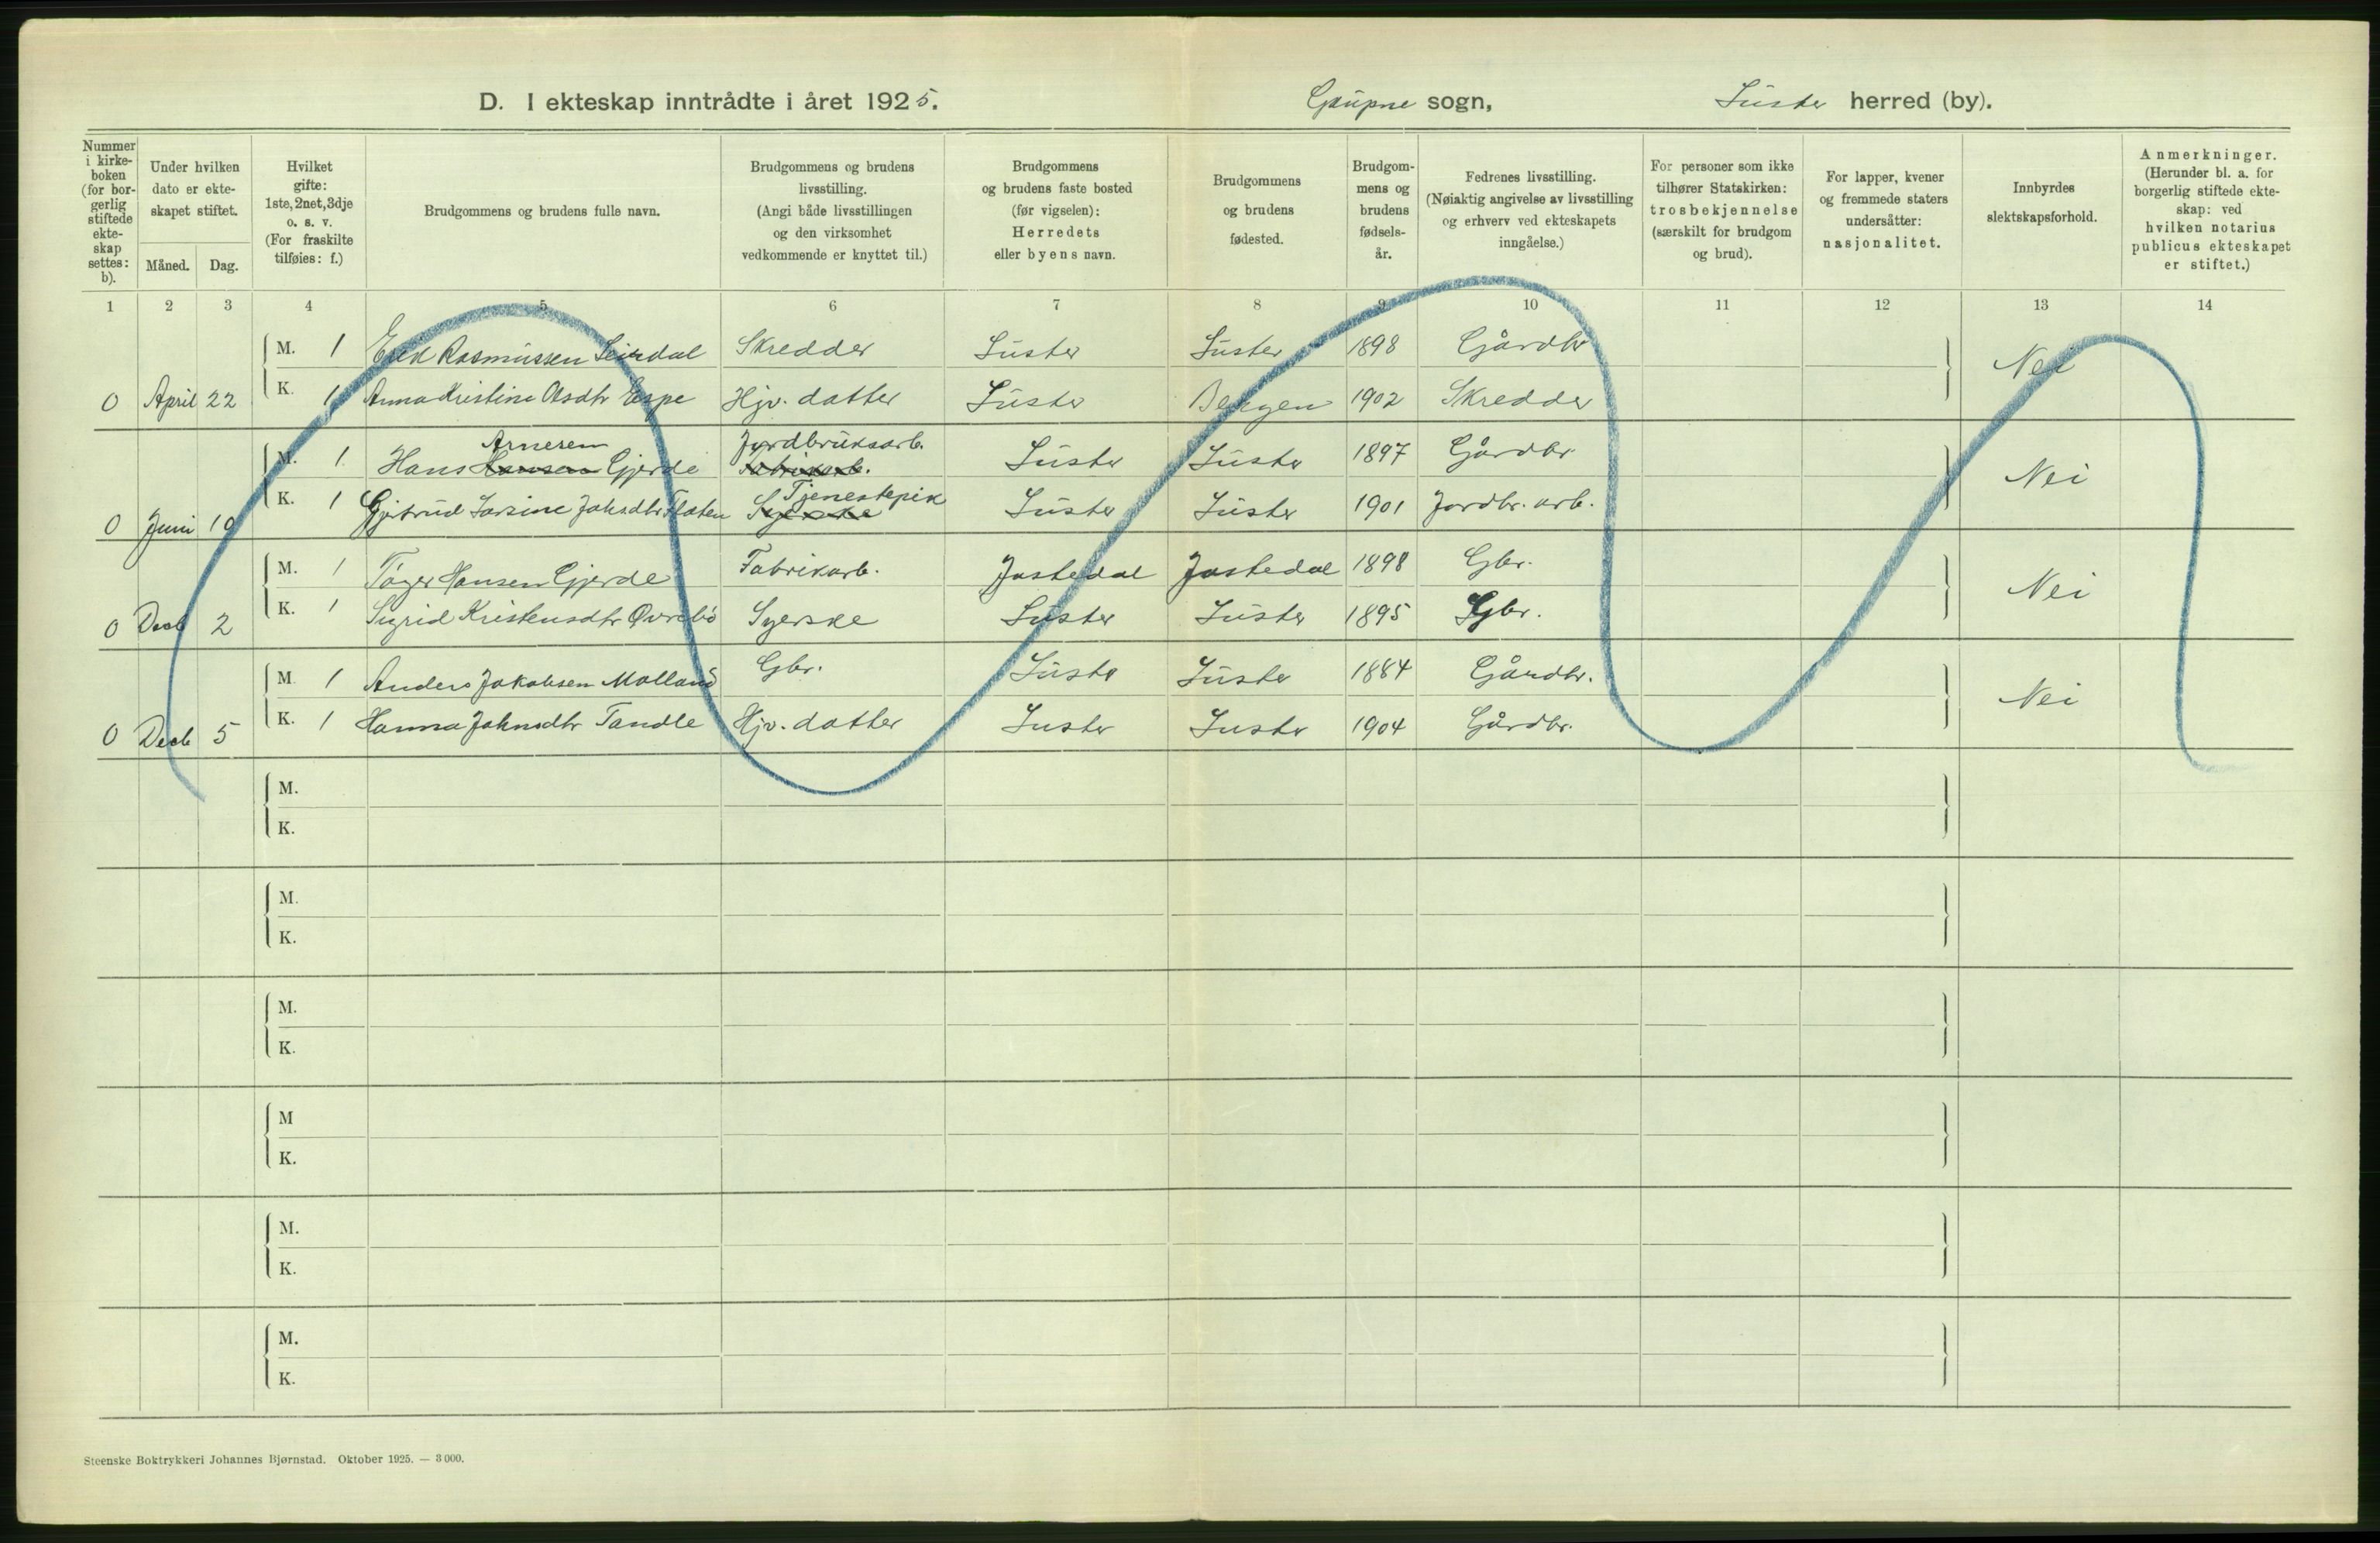 D. I ekteskap inntrådte i året 1925. Gaupne sogn, Luster herred (by).
Nummer i kirke- boken (for bor- gerlig stiftede ekte- skap settes: b).
Under hvilken dato er ekte- skapet stiftet.
Måned. Dag.
Hvilket gifte: 1ste, 2net, 3dje o. s. v. (For fraskilte tilføies: f.)
Brudgommens og brudens fulle navn.
Brudgommens og brudens livsstilling. (Angi både livsstillingen og den virksomhet vedkommende er knyttet til.)
Brudgommens og brudens faste bosted (før vigselen): Herredets eller byens navn.
Brudgommens og brudens fødested.
Brudgom- mens og brudens fødsels- år.
Fedrenes livsstilling. (Nøiaktig angivelse av livsstilling og erhverv ved ekteskapets inngåelse.)
For personer som ikke tilhører Statskirken: trosbekjennelse (særskilt for brudgom og brud).
For lapper, kvener og fremmede staters undersåtter: nasjonalitet.
Innbyrdes slektskapsforhold.
Anmerkninger. (Herunder bl. a. for borgerlig stiftede ekte- skap: ved hvilken notarius publicus ekteskapet er stiftet.)
1 2 3 4 5 6 7 8 9 10 11 12 13 14
M. 1 Erik Rasmussen Leirdal Skredder Luster Luster 1898 Gårdbr Nei
0 April 22 K. 1 Anna Kristine Olsdtr Espe Hjv. datter Luster Bergen 1902 Skredder
Arnesen Jordbruksarb.
M. 1 Hans Hansen Gjerde Fabrikarb. Luster Luster 1897 Gårdbr Nei
Tjenestepik
0 Juni 10 K. 1 Gjertrud Larsine Johsdtr Flaten Syerske Luster Luster 1901 Jordbr. arb.
M. 1 Tøger Hansen Gjerde Fabrikarb. Jostedal Jostedal 1898 Gbr. Nei
0 Decb 2 K. 1 Sigrid Kristensdtr Øvrebö Syerske Luster Luster 1895 Gbr.
M. 1 Anders Jakobsen Molland Gbr. Luster Luster 1884 Gårdbr. Nei
0 Decb 5 K. 1 Hanna Johnsdtr Tandle Hjv. datter Luster Luster 1904 Gårdbr.
M.
K.
M.
K.
M.
K.
M
K.
M.
K.
M.
K.
Steenske Boktrykkeri Johannes Bjørnstad. Oktober 1925. — 3 000.